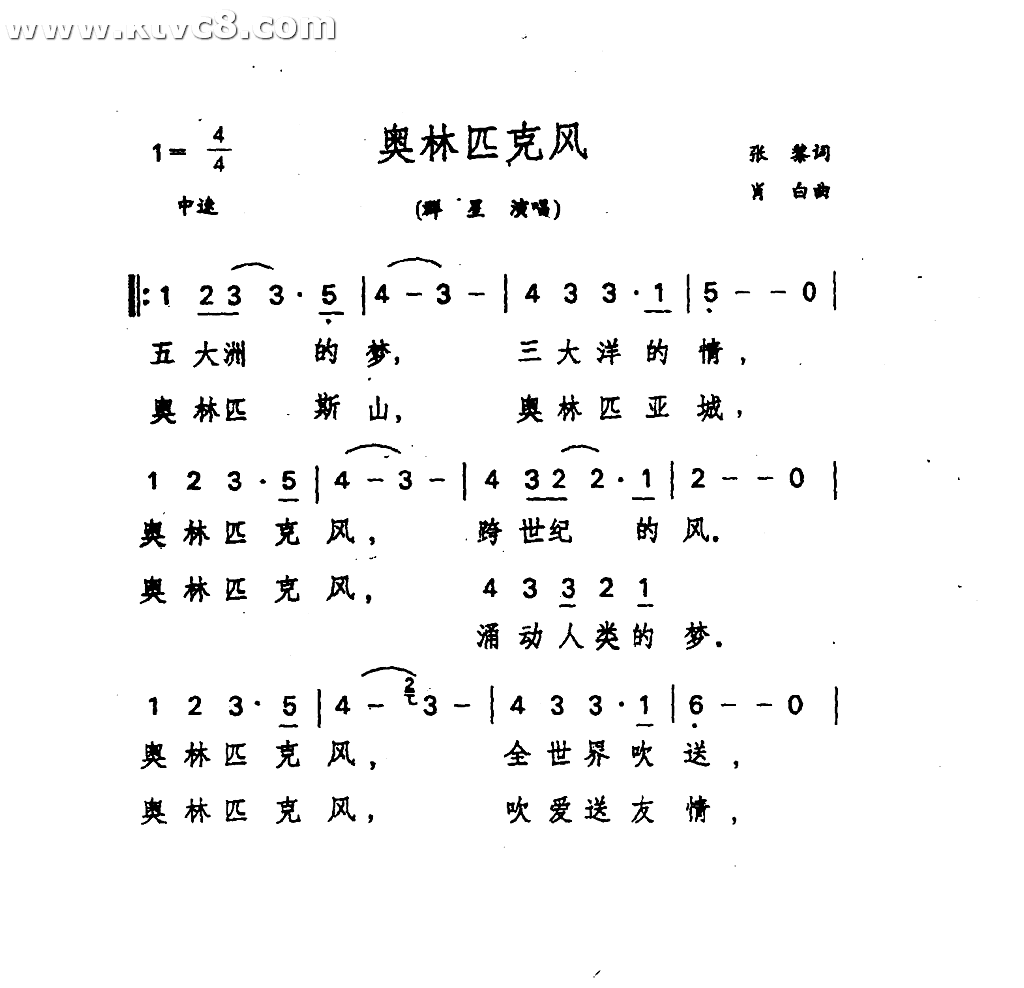 www.ktvc8.com
奥林匹克风
1= 4/4
张 黎词
中速
(群 星 演唱)
肖 白曲
‖: 1 2 3 3 · 5 | 4 – 3 – | 4 3 3 · 1 | 5 – – 0 |
五 大 洲 的 梦, 三 大 洋 的 情,
奥 林 匹 斯 山, 奥 林 匹 亚 城,
1 2 3 · 5 | 4 – 3 – | 4 3 2 2 · 1 | 2 – – 0 |
奥 林 匹 克 风, 跨 世 纪 的 风.
奥 林 匹 克 风, 4 3 3 2 1
涌 动 人 类 的 梦.
1 2 3 · 5 | 4 – 2 3 – | 4 3 3 · 1 | 6 – – 0 |
奥 林 匹 克 风, 全 世 界 吹 送,
奥 林 匹 克 风, 吹 爱 送 友 情,